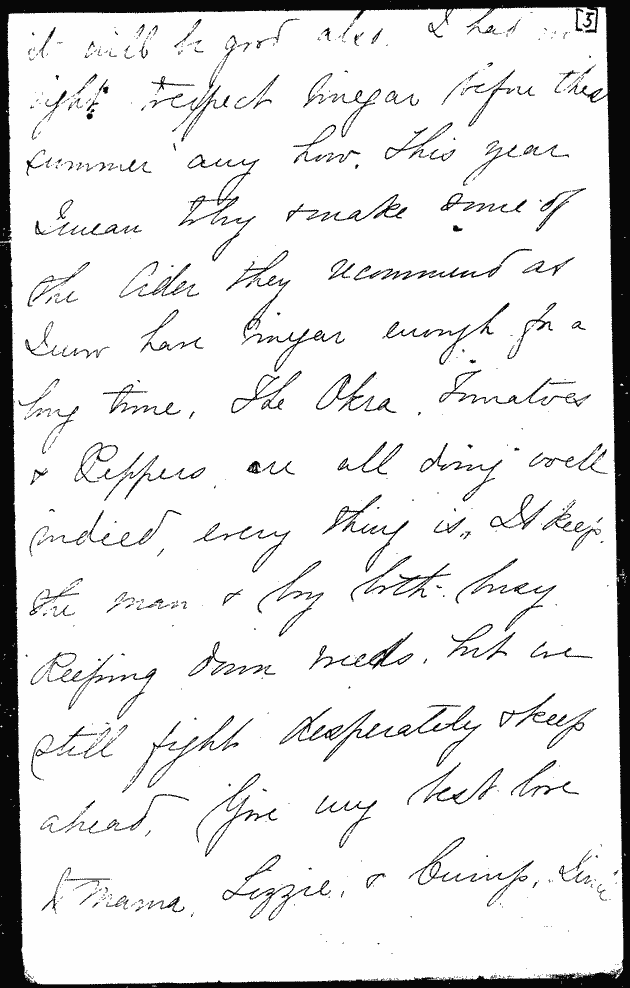 [3]
it will be good also. I had no
right respect vinegar before this
summer any how. This year
I mean to try & make some of
the Cider they recommend as
I now have vinegar enough for a
long time. The Okra, Tomatoes
& Peppers are all doing well
indeed, every thing is. It keeps
the man & boy both busy
keeping down weeds, but we
still fight desperately & keep
ahead. Give my best love
to Mama, Lizzie, & Cump.